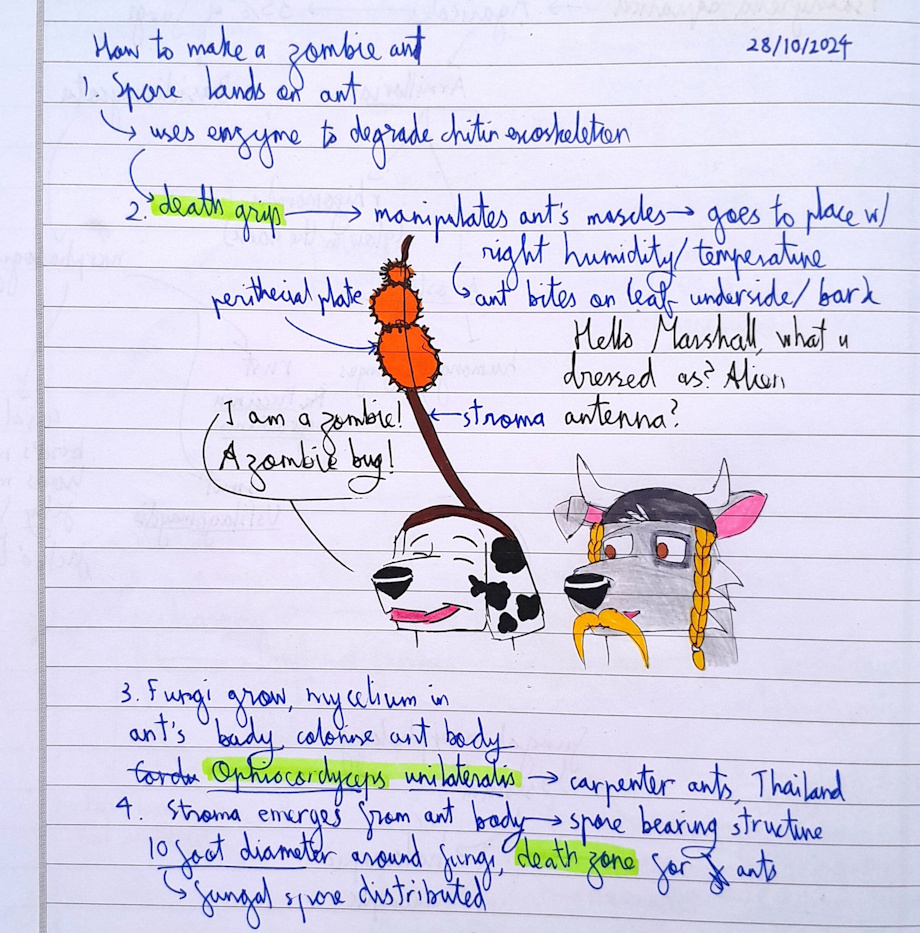 How to make a zombie ant
28/10/2024
1. Spore lands on ant
↳ uses enzyme to degrade chitin exoskeleton
2. death grip → manipulates ant's muscles → goes to place w/
right humidity/temperature
↳ ant bites on leaf underside/bark
perithecial plate
Hello Marshall, what u
dressed as? Alien
antenna?
← stroma
I am a zombie!
A zombie bug!
3. Fungi grow, mycelium in
ant's body, colonise ant body
Ophiocordyceps unilateralis → carpenter ants, Thailand
4. Stroma emerges from ant body → spore bearing structure
10 foot diameter around fungi, death zone for ants
↳ fungal spore distributed